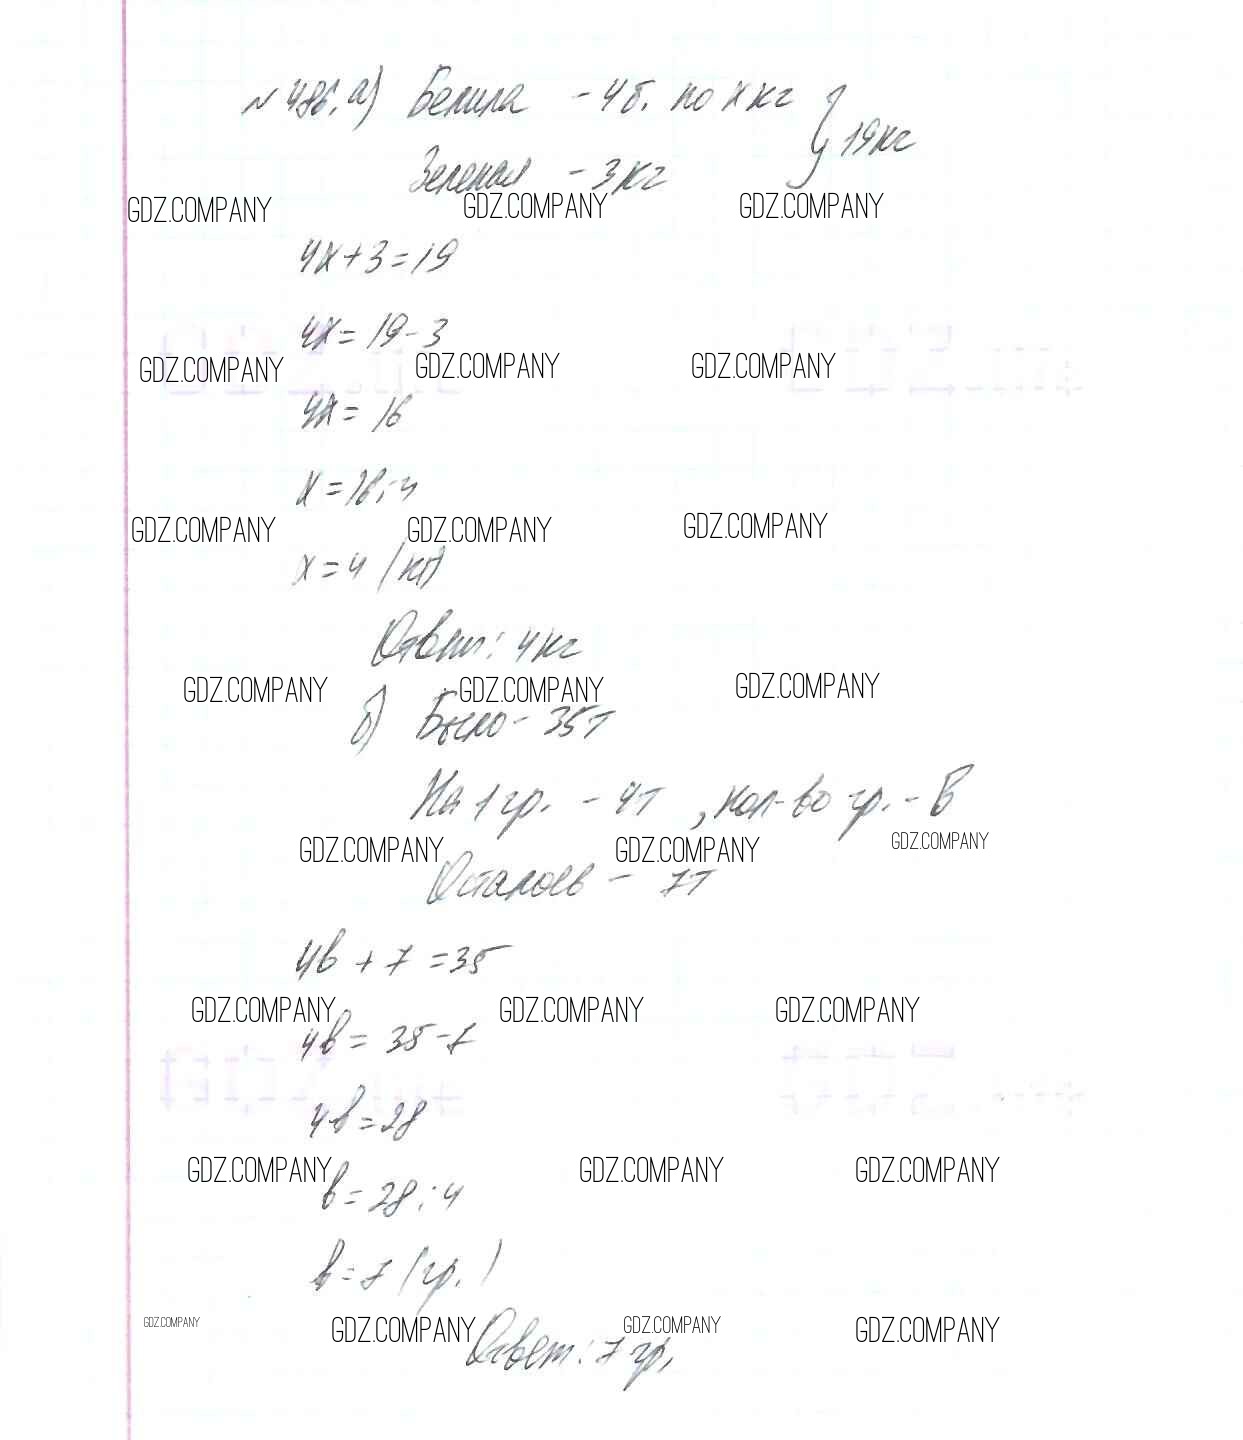 № 486. а) Белила - 4 б. по x кг } 19 кг
Зеленая - 3 кг
GDZ.COMPANY GDZ.COMPANY GDZ.COMPANY
4x + 3 = 19
4x = 19 - 3
GDZ.COMPANY GDZ.COMPANY GDZ.COMPANY
4x = 16
x = 16 : 4
GDZ.COMPANY GDZ.COMPANY GDZ.COMPANY
x = 4 (кг)
Ответ: 4 кг
GDZ.COMPANY GDZ.COMPANY GDZ.COMPANY
б) Было - 35 т
На 1 гр. - 4 т, кол-во гр. - в
GDZ.COMPANY GDZ.COMPANY GDZ.COMPANY
Осталось - 7 т
4в + 7 = 35
GDZ.COMPANY GDZ.COMPANY GDZ.COMPANY
4в = 35 - 7
4в = 28
GDZ.COMPANY GDZ.COMPANY GDZ.COMPANY
в = 28 : 4
в = 7 (гр.)
GDZ.COMPANY GDZ.COMPANY GDZ.COMPANY GDZ.COMPANY
Ответ: 7 гр.